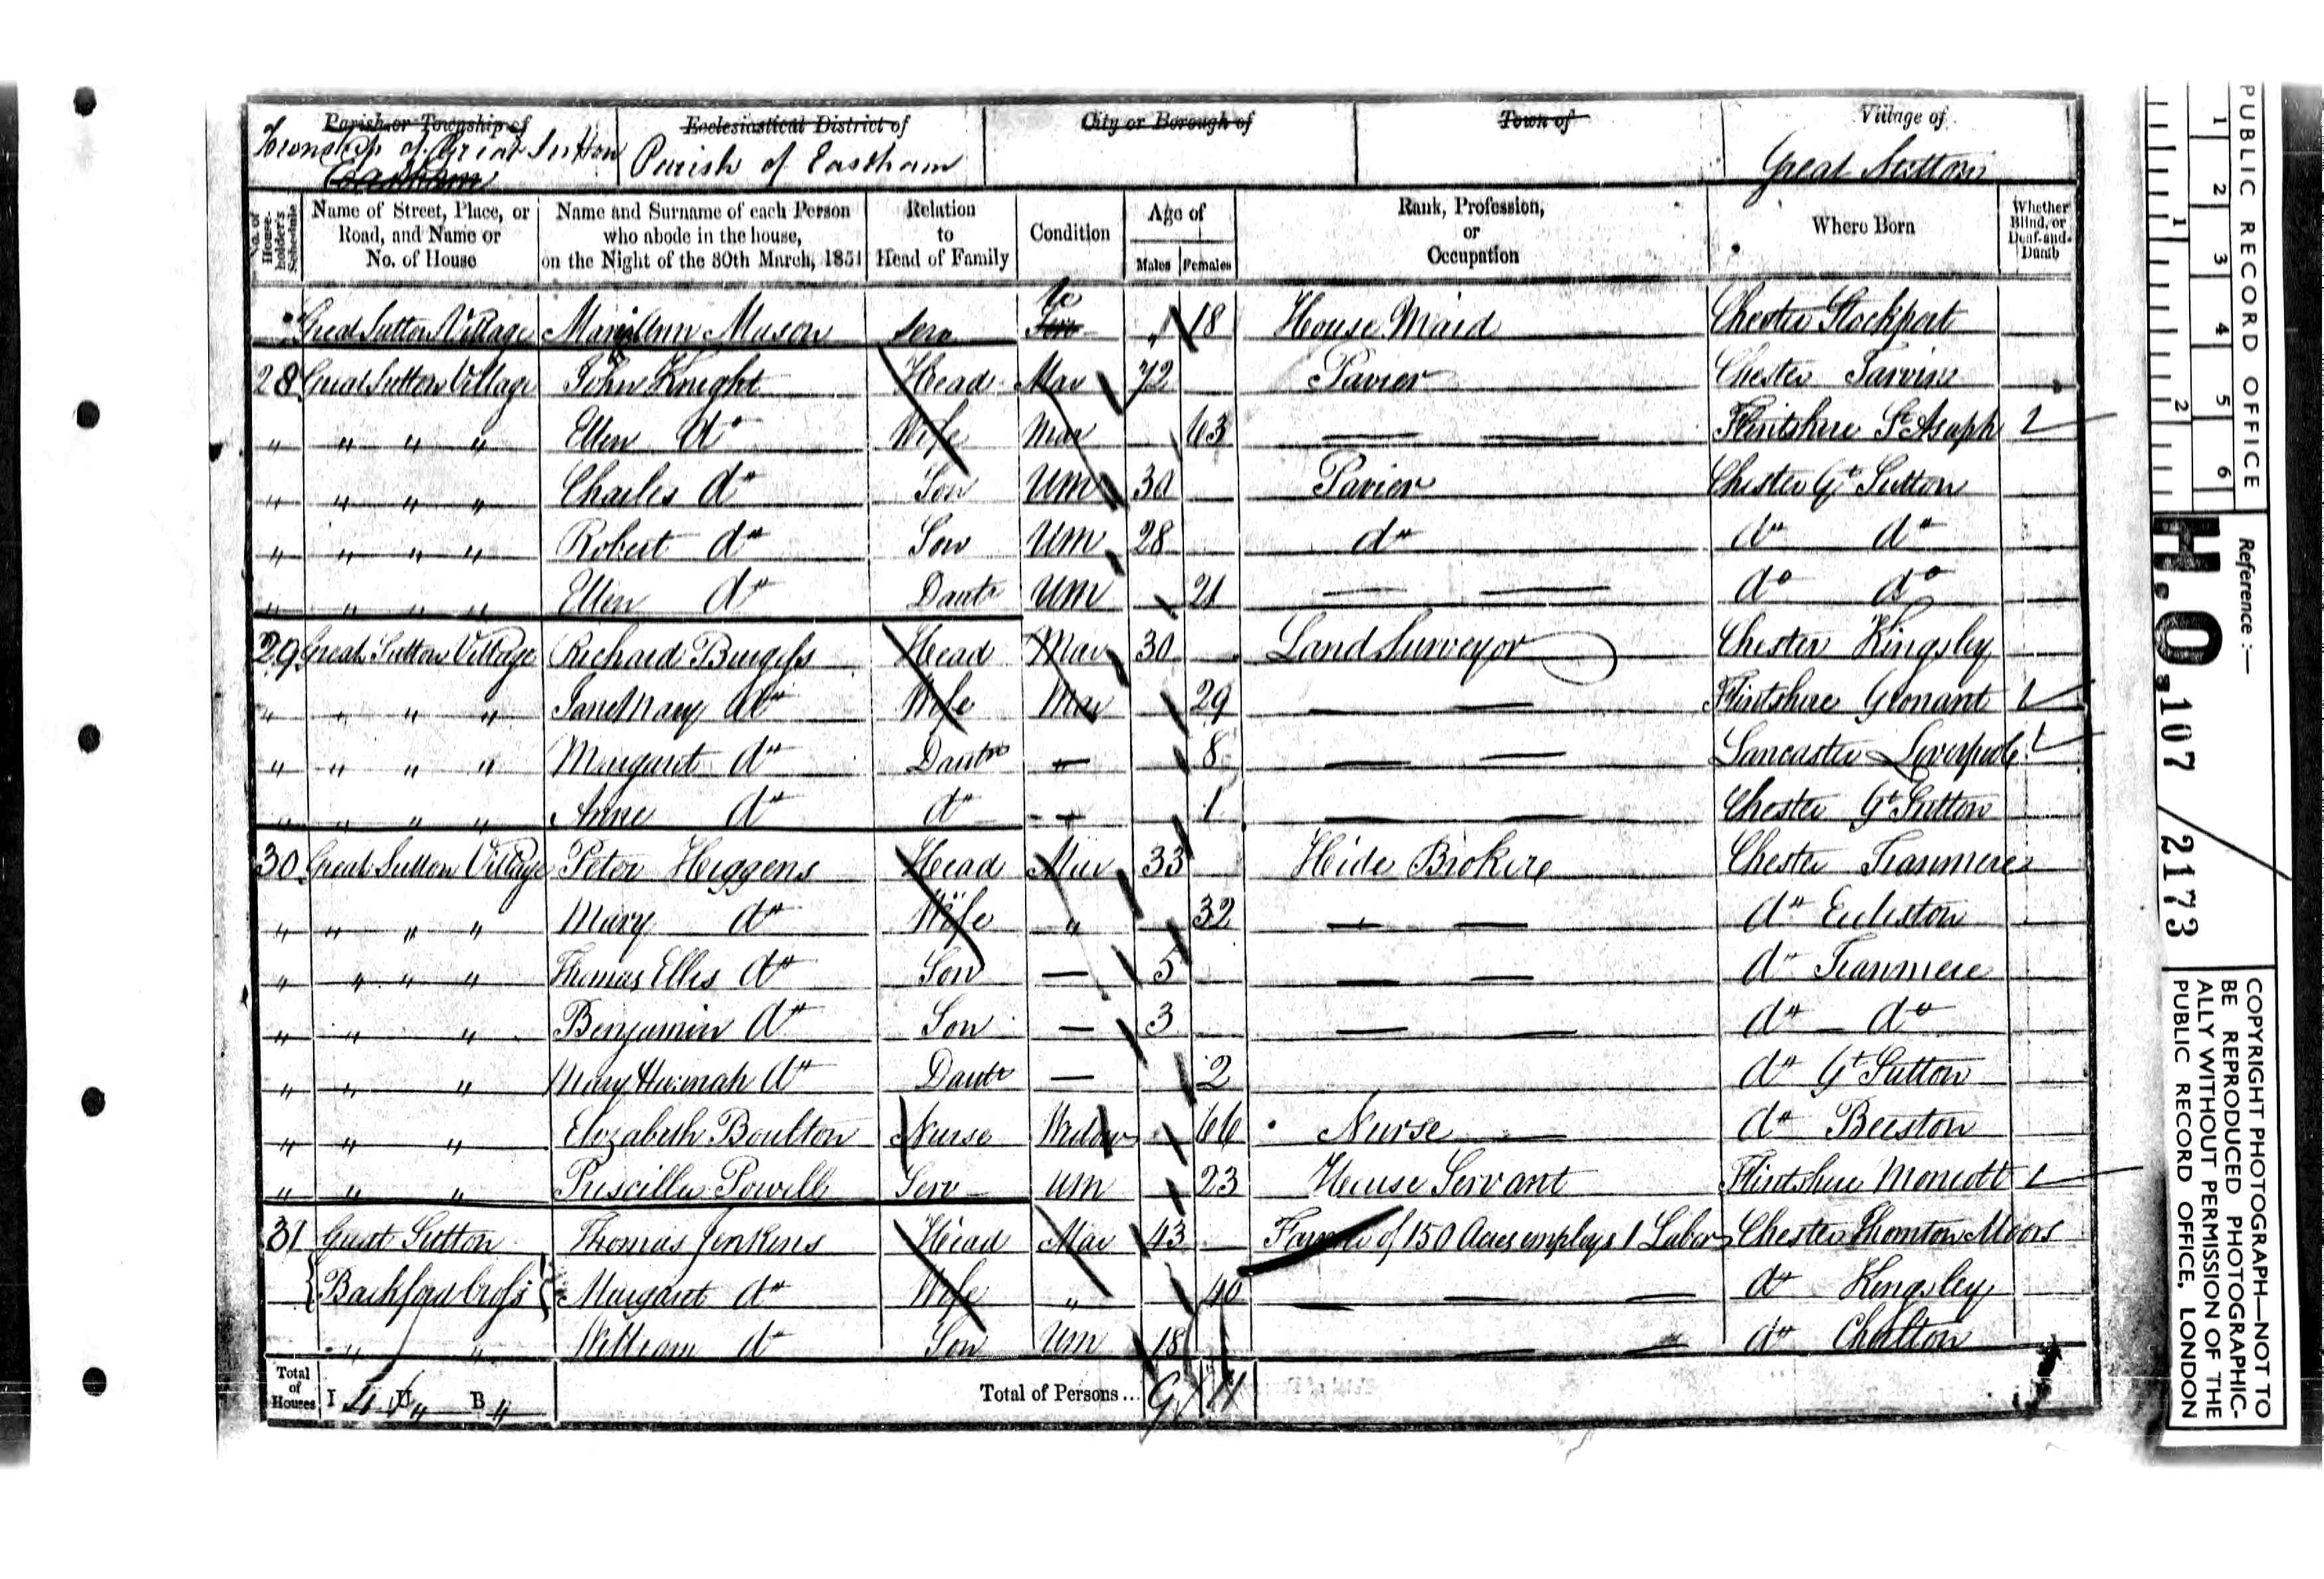 Parish or Township of Ecclesiastical District of City or Borough of Town of Village of
Township of Great Sutton Parish of Eastham Great Sutton
Eastham
No. of House-holder's Schedule Name of Street, Place, or Road, and Name or No. of House Name and Surname of each Person who abode in the house, on the Night of the 30th March, 1851 Relation to Head of Family Condition Age of Males Females Rank, Profession, or Occupation Where Born Whether Blind, or Deaf-and-Dumb
Great Sutton Village Ann Mason Serv " 18 House Maid Chester Stockport
28 Great Sutton Village John Knight Head Mar 72 Pavier Chester Tarvin
" " " " Ellen do Wife Mar 63 — — Flintshire St Asaph
" " " " Charles do Son Um 30 Pavier Chester Gt Sutton
" " " " Robert do Son Um 28 do do do
" " " " Ellen do Dautr Um 21 — — do do
29 Great Sutton Village Richard Burgess Head Mar 30 Land Surveyor Chester Kingsley
" " " " Jane Mary do Wife Mar 29 — — Flintshire
" " " " Margaret do Dautr — 8 — — Lancaster Liverpool
" " " " Anne do do — 1 — — Chester Gt Sutton
30 Great Sutton Village Peter Higgens Head Mar 33 Hide Chester Tranmere
" " " " Mary do Wife " 32 — — do Eccleston
" " " " Thomas Ellis do Son — 5 — — do Tranmere
" " " Benjamin do Son — 3 — — do do
" " " Mary Hannah do Dautr — 2 do Gt Sutton
" " " Elizabeth Boulton Nurse Widow 66 Nurse — do Beeston
" " " Priscilla Powell Serv Um 23 House Servant Flintshire
31 Great Sutton Thomas Jenkins Head Mar 43 Farmer of 150 Acres employs 1 Labor Chester Thornton Moors
{Backford Cross} Margaret do Wife " 40 — — — do Kingsley
" " William do Son Um 18 — — do
Total of Houses I 4 U " B " Total of Persons... 9 11
PUBLIC RECORD OFFICE
1 2 3 4 5 6
1 2
Reference :—
H.O. 107 / 2173
COPYRIGHT PHOTOGRAPH—NOT TO
BE REPRODUCED PHOTOGRAPHIC-
ALLY WITHOUT PERMISSION OF THE
PUBLIC RECORD OFFICE, LONDON